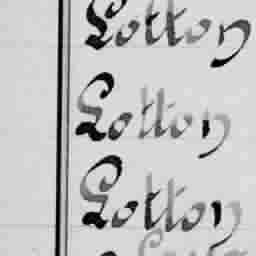 Lotton
Lotton
Lotton